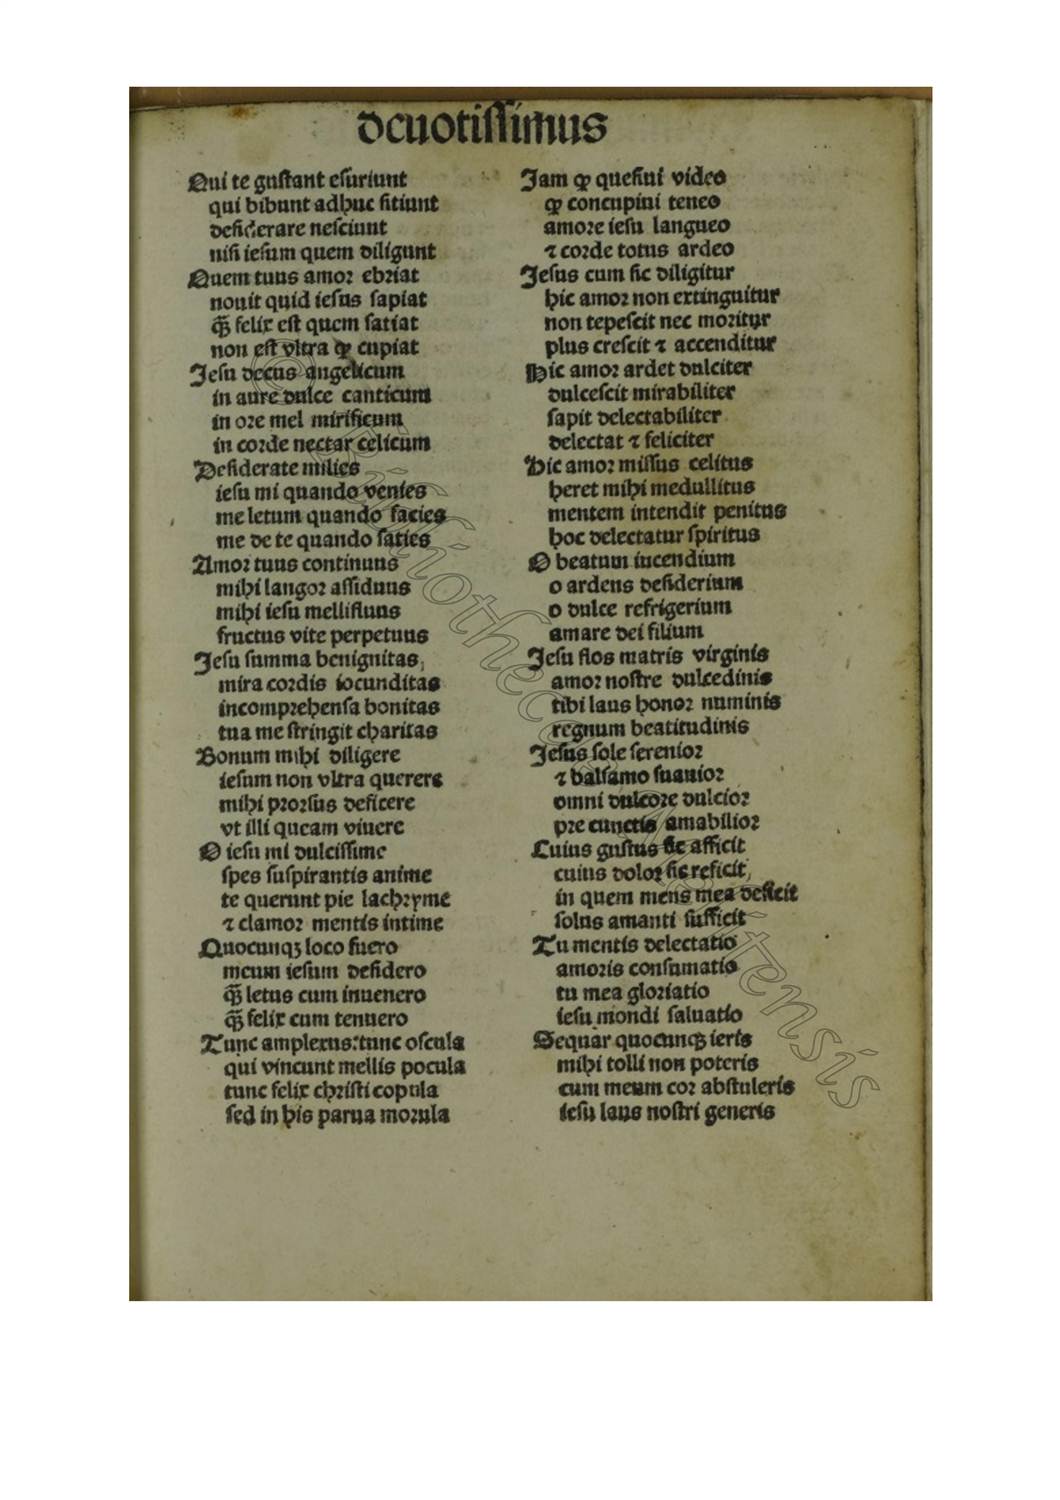 deuotissimus
Qui te gustant esuriunt
qui bibunt adhuc sitiunt
desiderare nesciunt
nisi iesum quem diligunt
Quem tuus amor ebriat
nouit quid iesus sapiat
q̃ȝ felix est quem satiat
non est vltra qđ cupiat
Jesu decus angelicum
in aure dulce canticum
in ore mel mirificum
in corde nectar celicum
Desiderate milies
iesu mi quando venies
me letum quando facies
me de te quando saties
Amor tuus continuus
mihi langor assiduus
mihi iesu mellifluus
fructus vite perpetuus
Jesu summa benignitas
mira cordis iocunditas
incomprehensa bonitas
tua me stringit charitas
Bonum mihi diligere
iesum non vltra querere
mihi prorsus deficere
vt illi queam viuere
O iesu mi dulcissime
spes suspirantis anime
te querunt pie lachryme
⁊ clamor mentis intime
Quocunqȝ loco fuero
meum iesum desidero
q̃ȝ letus cum inuenero
q̃ȝ felix cum tenuero
Tunc amplexus: tunc oscula
qui vincunt mellis pocula
tunc felix christi copula
sed in his parua morula
Jam qđ quesiui video
qđ concupiui teneo
amore iesu langueo
⁊ corde totus ardeo
Jesus cum sic diligitur
hic amor non extinguitur
non tepescit nec moritur
plus crescit ⁊ accenditur
Hic amor ardet dulciter
dulcescit mirabiliter
sapit delectabiliter
delectat ⁊ feliciter
Hic amor missus celitus
heret mihi medullitus
mentem intendit penitus
hoc delectatur spiritus
O beatum incendium
o ardens desiderium
o dulce refrigerium
amare dei filium
Jesu flos matris virginis
amor nostre dulcedinis
tibi laus honor numinis
regnum beatitudinis
Jesus sole serenior
⁊ balsamo suauior
omni dulcore dulcior
pre cunctis amabilior
Cuius gustus sic afficit
cuius dolor sic reficit
in quem mens mea deficit
solus amanti sufficit
Tu mentis delectatio
amoris consumatio
tu mea gloriatio
iesu mondi saluatio
Sequar quocunqȝ ieris
mihi tolli non poteris
cum meum cor abstuleris
iesu laus nostri generis